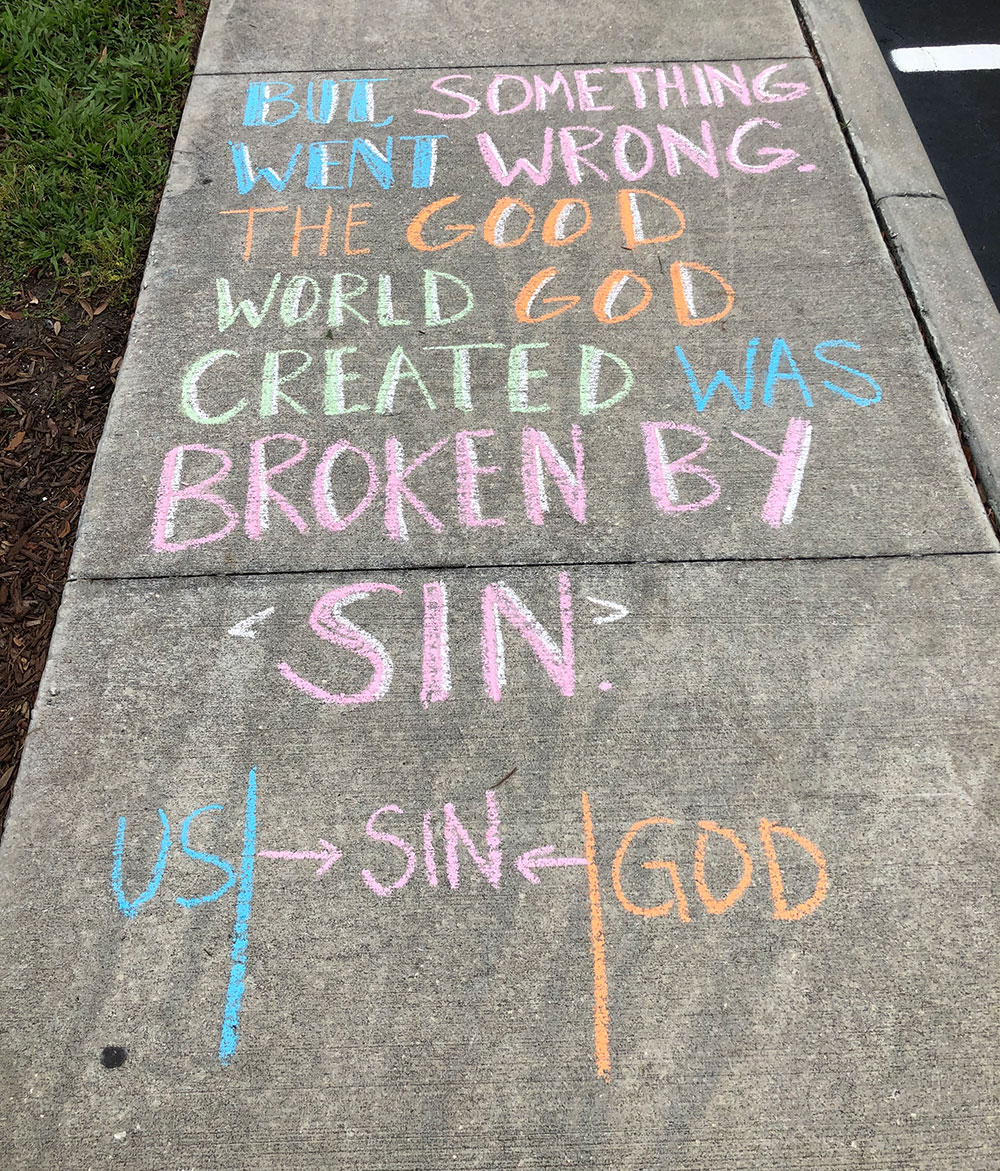 BUT SOMETHING
WENT WRONG.
THE GOOD
WORLD GOD
CREATED WAS
BROKEN BY
<SIN.>
US → SIN ← GOD